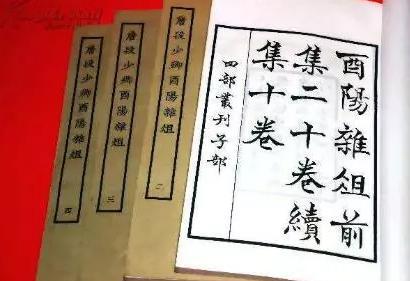 酉陽雜俎前
集二十卷續
集十卷
四部叢刊子部
唐段少卿酉陽雜俎 二
唐段少卿酉陽雜俎 三
唐段少卿酉陽雜俎 四